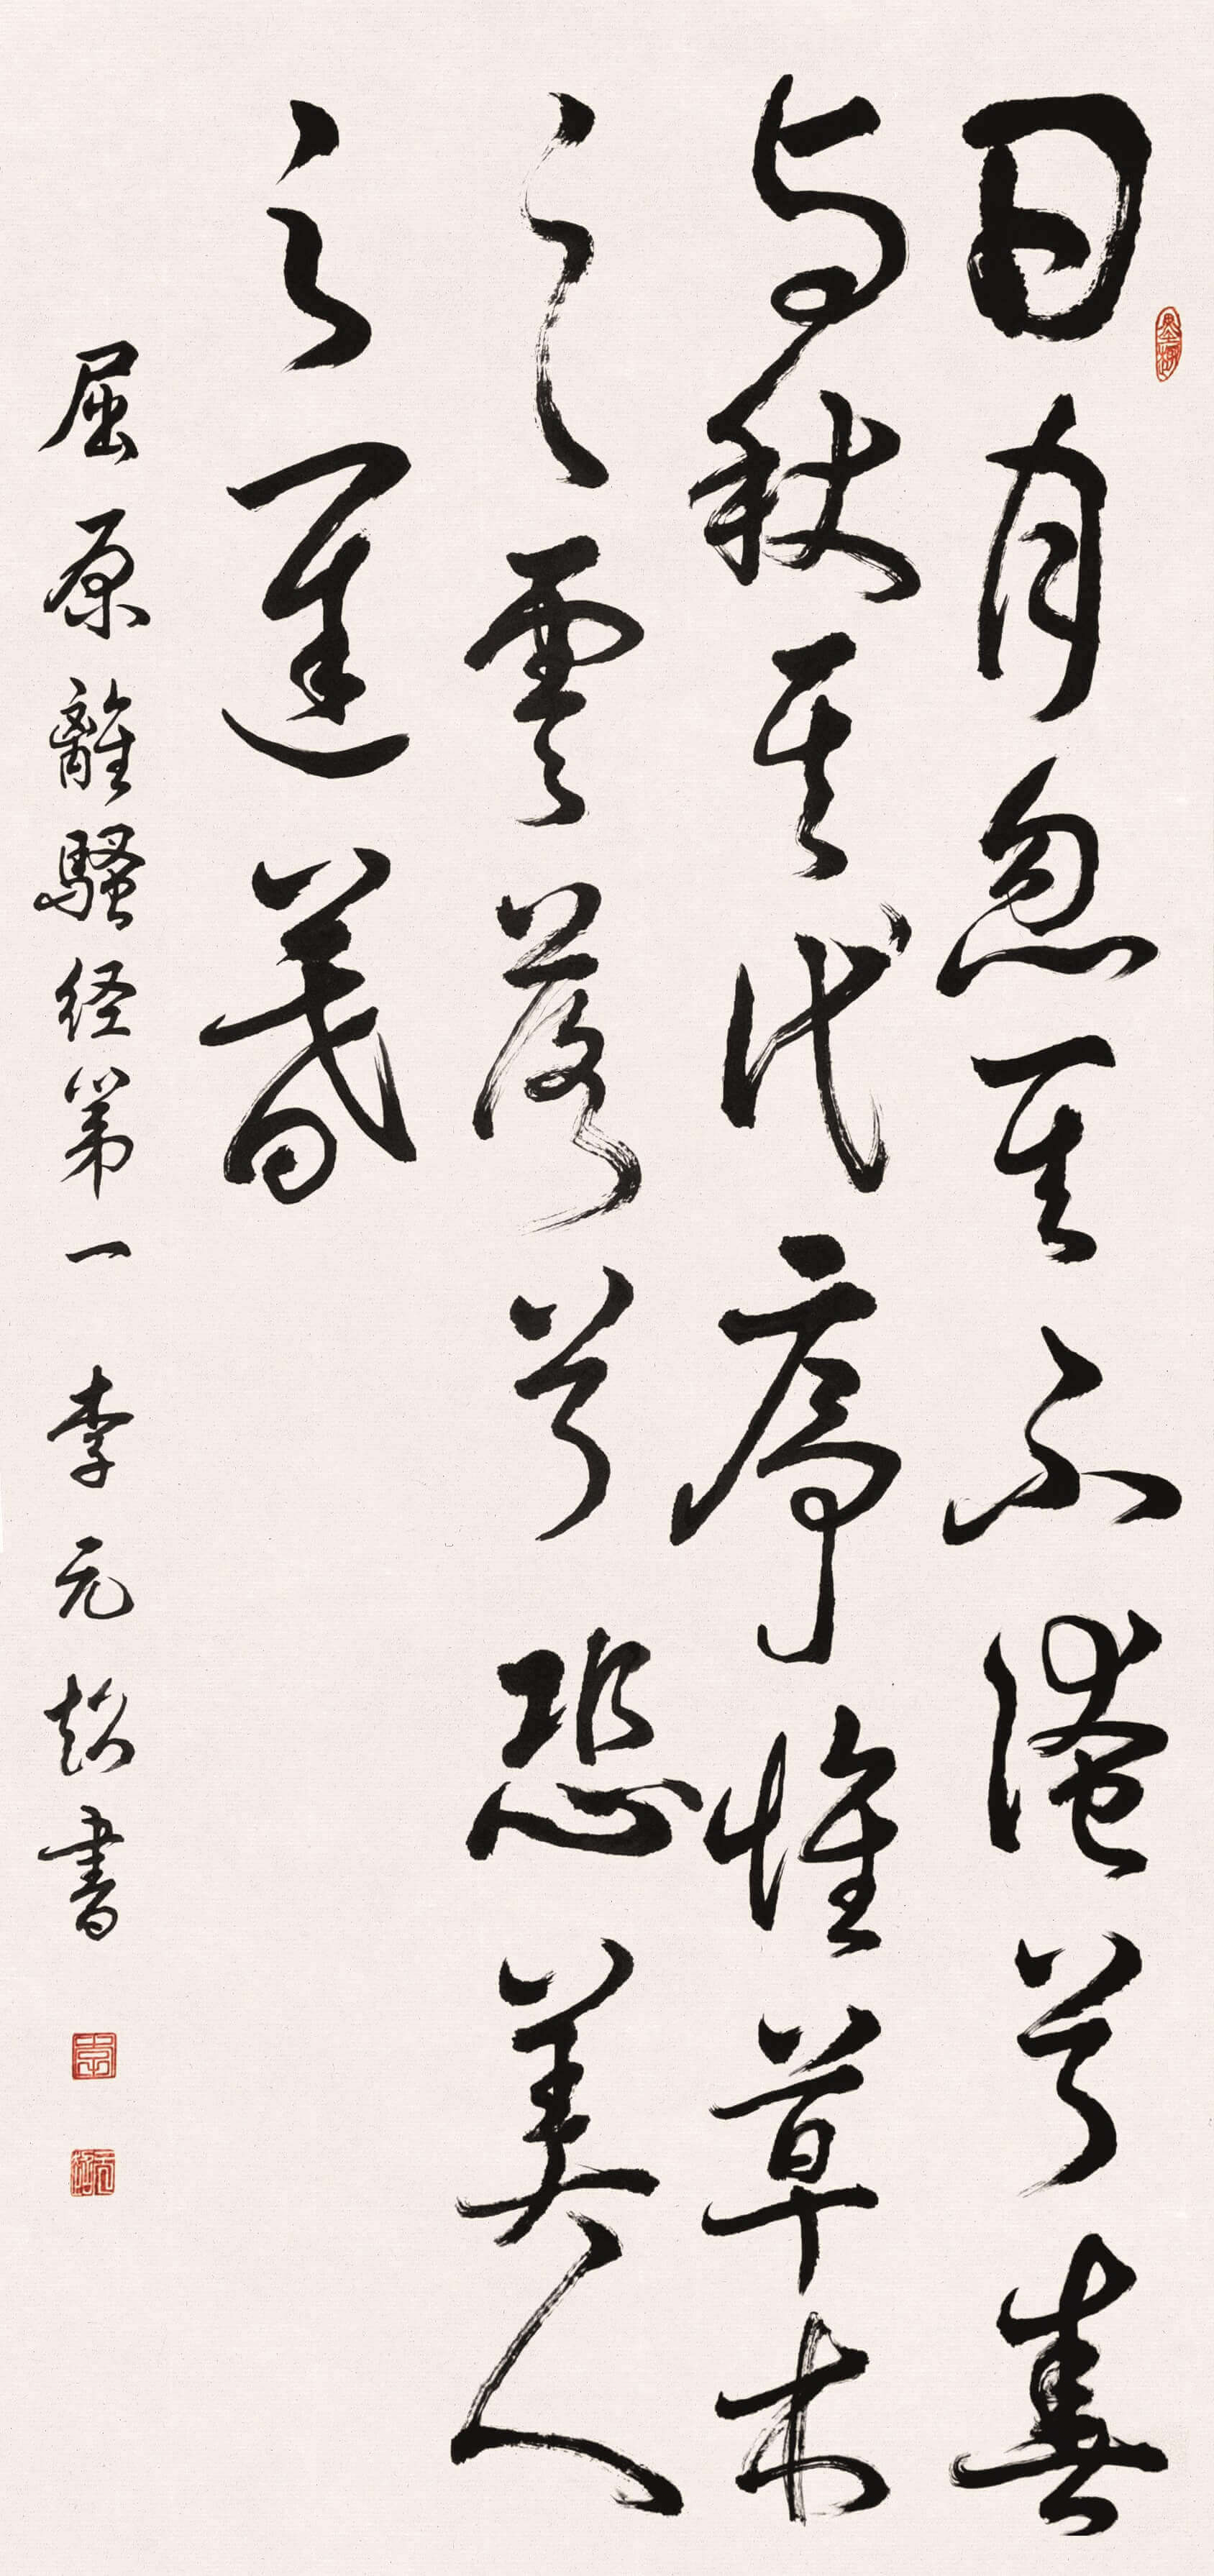 日月忽其不淹兮春
与秋其代序惟草木
之零落兮恐美人
之遲暮
屈原離騷经第一 李元超書